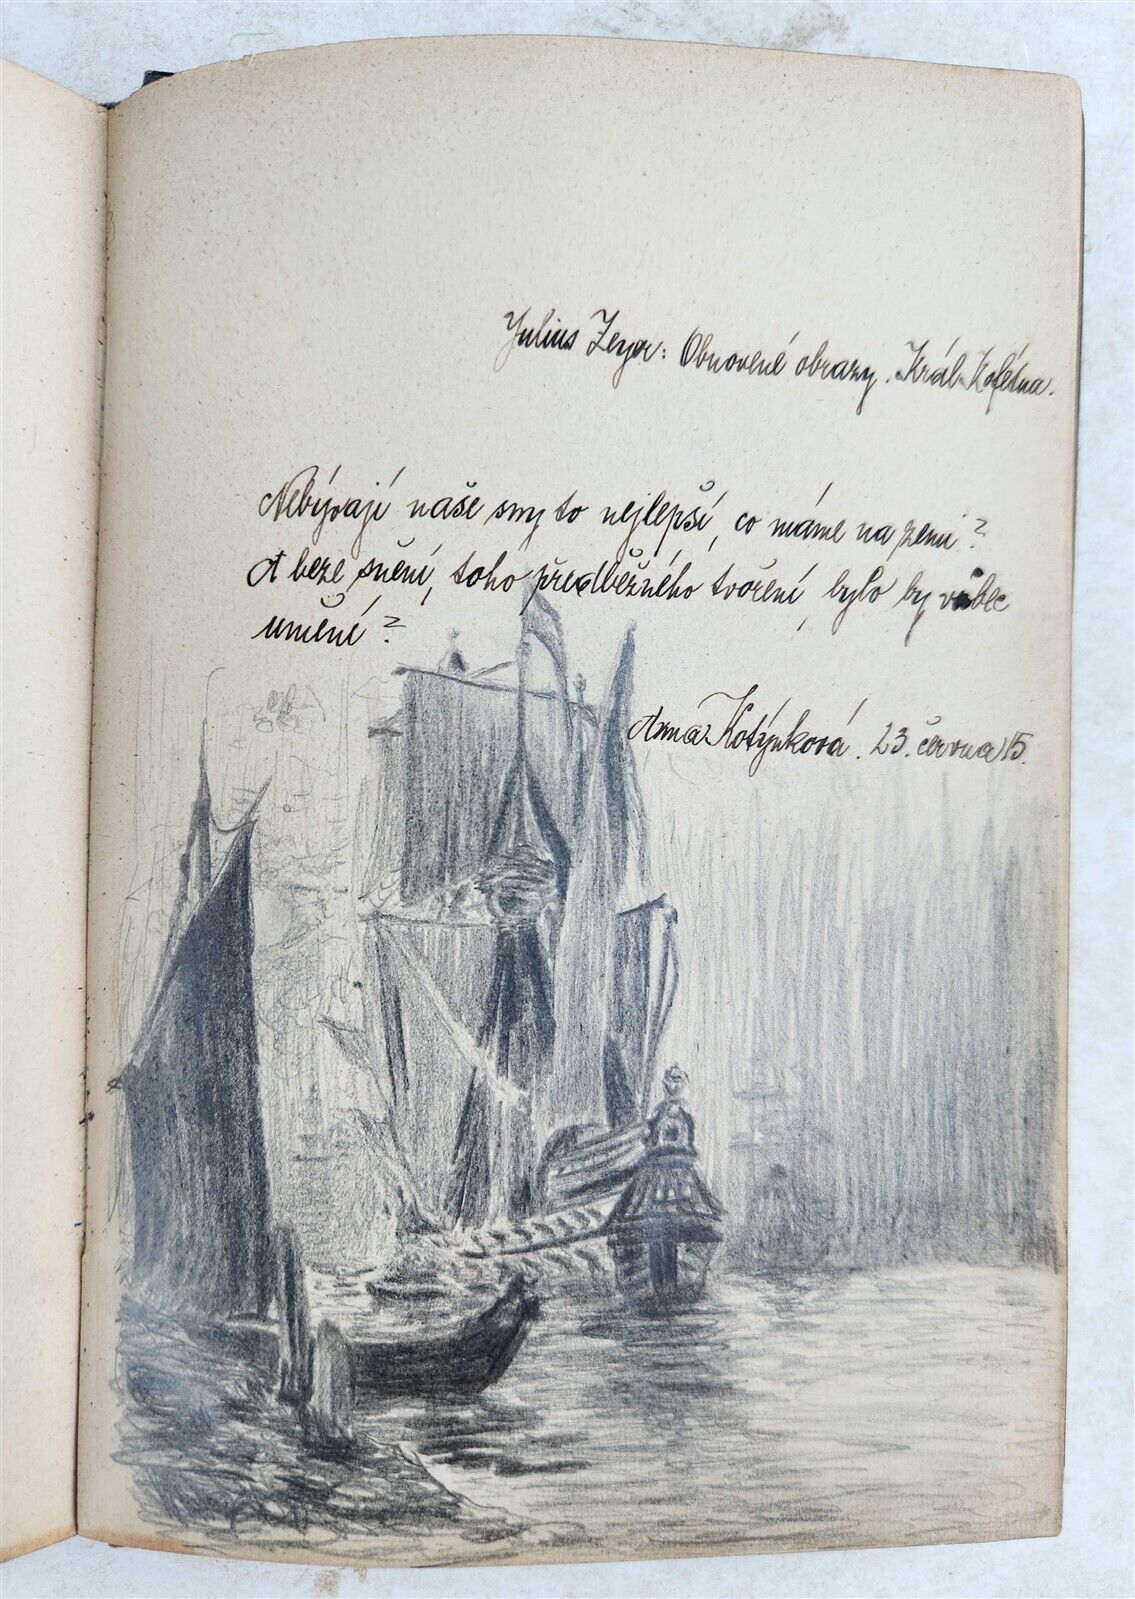 Julius Zeyer: Obnovené obrazy. Král Kofétua.
Nebývají naše sny to nejlepší, co máme na zemi?
A beze snění, toho předběžného tvoření, bylo by vůbec
umění?
Anna Kotýnková. 23. června 15.